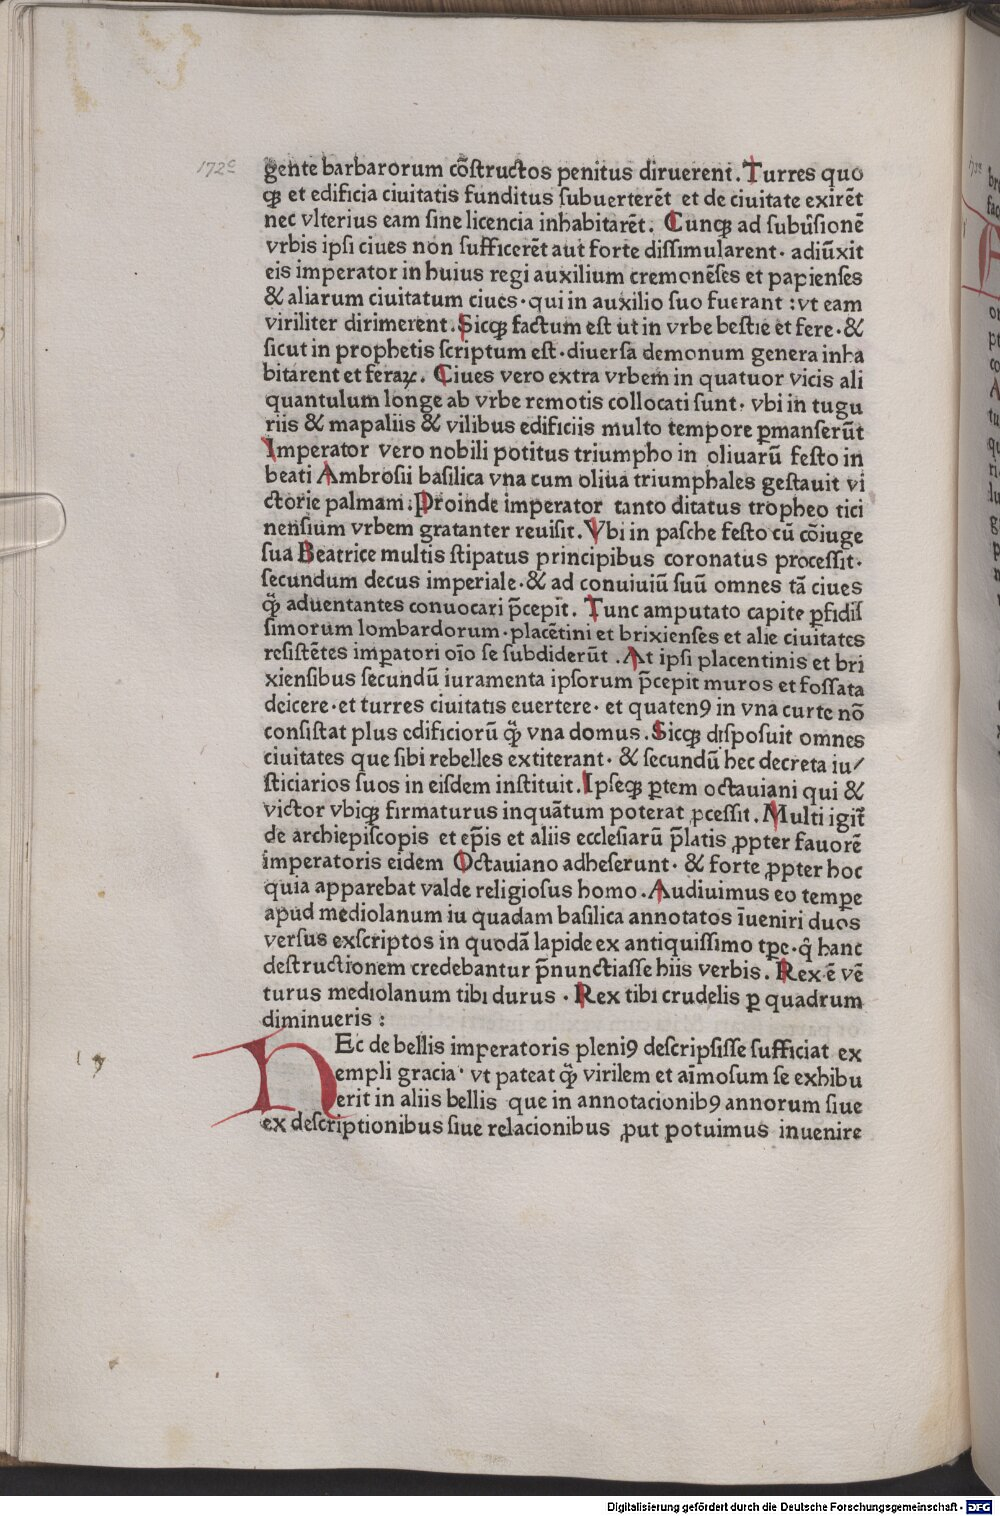 172c
gente barbarorum cõſtructos penitus diruerent. Turres quo
qꝫ et edificia ciuitatis funditus ſubuerterēt et de ciuitate exirēt
nec vlterius eam ſine licencia inhabitarēt. Cunqꝫ ad ſubũſionē
vrbis ipſi ciues non ſufficerēt aut forte diſſimularent· adiūxit
eis imperator in huius regi auxilium cremonēſes et papienſes
& aliarum ciuitatum ciues·qui in auxilio ſuo fuerant : vt eam
viriliter dirimerent. Sicqꝫ factum eſt ut in vrbe beſtie et fere·&
ſicut in prophetis ſcriptum eſt·diuerſa demonum genera inha
bitarent et feraꝝ. Ciues vero extra vrbem in quatuor vicis ali
quantulum longe ab vrbe remotis collocati ſunt· vbi in tugu
riis & mapaliis & vilibus edificiis multo tempore ꝑmanſerūt
Imperator vero nobili potitus triumpho in oliuarū feſto in
beati Ambroſii baſilica vna cum oliua triumphales geſtauit vi
ctorie palmam. Proinde imperator tanto ditatus tropheo tici
nenſium vrbem gratanter reuiſit. Vbi in paſche feſto cū cōiuge
ſua Beatrice multis ſtipatus principibus coronatus proceſſit·
ſecundum decus imperiale·& ad conuiuiū ſuū omnes tā ciues
q̄ꝫ aduentantes conuocari p̄cepit. Tunc amputato capite ꝑfidiſ
ſimorum lombardorum·placētini et brixienſes et alie ciuitates
reſiſtētes imꝑatori oīo ſe ſubdiderūt . At ipſi placentinis et bri
xienſibus ſecundū iuramenta ipſorum p̄cepit muros et foſſata
deicere·et turres ciuitatis euertere· et quatenꝰ in vna curte nō
conſiſtat plus edificiorū q̄ꝫ vna domus. Sicqꝫ diſpoſuit omnes
ciuitates que ſibi rebelles extiterant· & ſecundū hec decreta iu/
ſticiarios ſuos in eiſdem inſtituit. Ipſeqꝫ ꝑtem octauiani qui &
victor vbiqꝫ firmaturus inquātum poterat ꝓceſſit. Multi igit᷑
de archiepiſcopis et ep̄is et aliis eccleſiarū p̄latis ꝓpter fauorē
imperatoris eidem Octauiano adheſerunt· & forte ꝓpter hoc
quia apparebat valde religioſus homo. Audiuimus eo tempe
apud mediolanum iu quadam baſilica annotatos īueniri duos
verſus exſcriptos in quodā lapide ex antiquiſſimo tꝑe·q̄ hanc
deſtructionem credebantur p̄nunctiaſſe hiis verbis. Rex ē vē
turus mediolanum tibi durus · Rex tibi crudelis ꝑ quadrum
diminueris :
HEc de bellis imperatoris pleniꝰ deſcripſiſſe ſufficiat ex
empli gracia· vt pateat q̄ꝫ virilem et aīmoſum ſe exhibu
erit in aliis bellis que in annotacionibꝰ annorum ſiue
ex deſcriptionibus ſiue relacionibus ꝓut potuimus inuenire
Digitalisierung gefördert durch die Deutsche Forschungsgemeinschaft - DFG